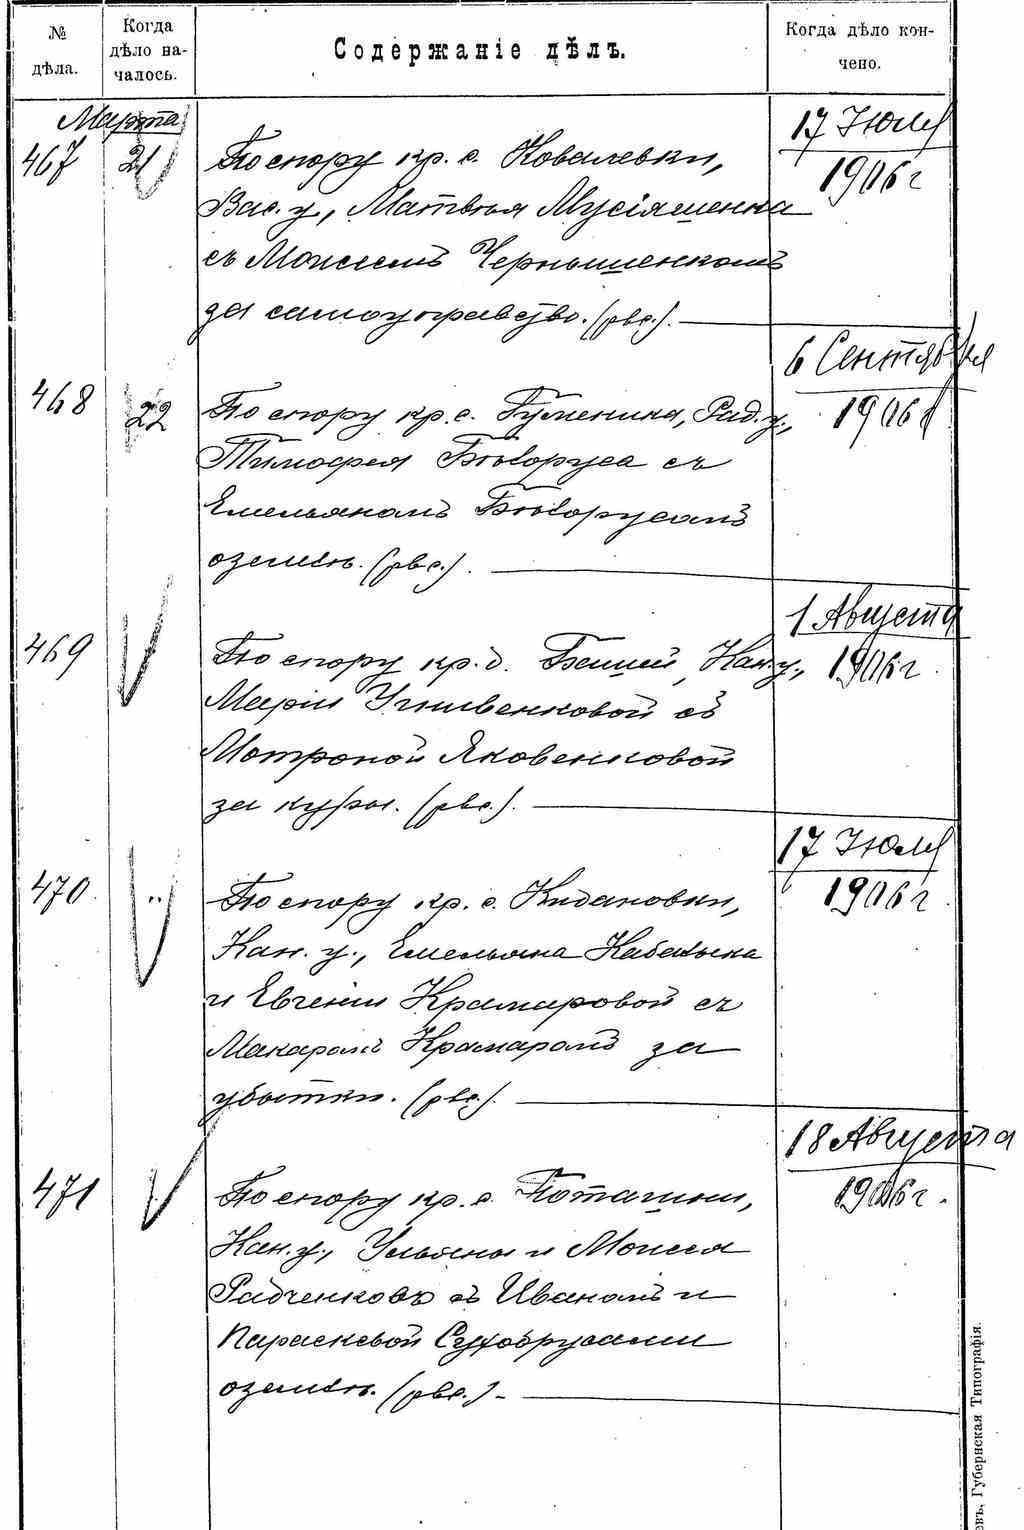 № дѣла.
Когда дѣло началось.
Содержаніе дѣлъ.
Когда дѣло кончено.
Марта
467
21
По спору кр. с. Ковалевки,
Вас. у., Матвѣя Мусіяшенка
съ Моисеемъ Чернышенкомъ
за самоуправство. (рвс.).
17 Июля
1906 г
468
22
По спору кр. с. Гуменика, Рад. у.,
Тимофея Бѣлоруса съ
Емельяномъ Бѣлорусомъ
о землѣ. (рвс.).
6 Сентября
1906 г
469
По спору кр. д. Кан. у.,
Маріи съ
Мотроной Яковенковой
за куры. (рвс.).
1 Августа
1906 г.
470
"
По спору кр. с. Кидановки,
Кан. у., Емельяна
и Евгеніи Крамаровой съ
Макаромъ Крамаромъ за
убытки. (рвс.).
17 Июля
1906 г.
471
По спору кр. с. Поташни,
Кан. у., Ульяны и Моисея
Радченковъ съ Иваномъ и
Параскевой Сухорусами
о землѣ. (рвс.).
18 Августа
1906 г.
евъ, Губернская Типографія.